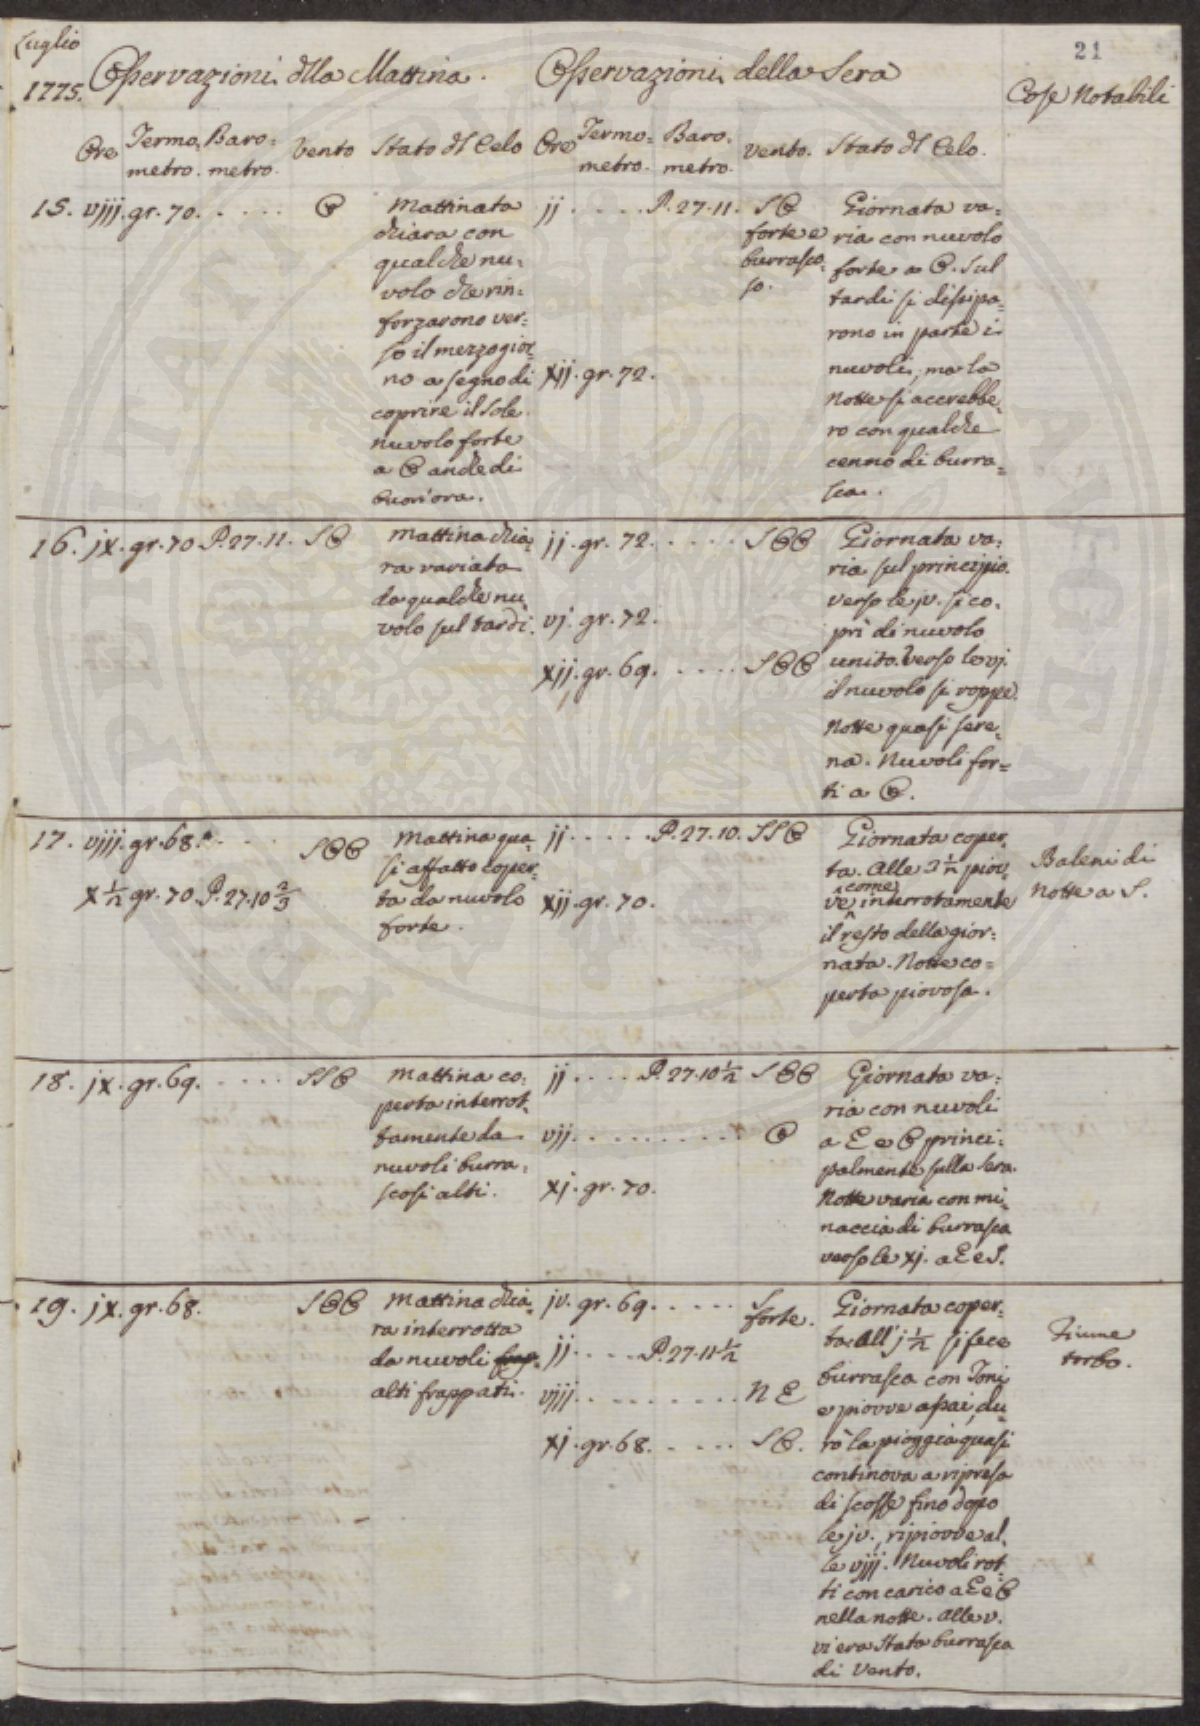 Luglio
1775.
21
Osservazioni dlla Mattina.
Osservazioni della Sera
Cose Notabili
Ore
Termo=
metro.
Baro=
metro.
Vento
Stato dl Celo
Ore
Termo=
metro.
Baro.
metro.
Vento.
Stato dl Celo.
15. viij. gr. 70. . . . . . O
Mattinata
chiara con
qualche nu=
volo che rin=
forzarono ver=
so il mezzogior=
no a segno di
coprire il Sole
nuvolo forte
a O anche di
buon'ora.
ij . . . . . P. 27. 11. SO
forte e
burrasco=
so.
xij. gr. 72.
Giornata va=
ria con nuvolo
forte a O. Sul
tardi si dissipa=
rono in parte i
nuvoli, ma la
Notte si accrebbe=
ro con qualche
cenno di burra=
sca.
16. jx. gr. 70 P. 27. 11. SO
Mattina chia=
ra variata
da qualche nu=
volo sul tardi.
ij. gr. 72. . . . . SOO
vj. gr. 72.
xij. gr. 69. . . . . SOO
Giornata va=
ria sul principio.
verso le jv. si co=
prì di nuvolo
unito. Verso le vj.
il nuvolo si roppe.
Notte quasi sere=
na. Nuvoli for=
ti a O.
17. viij. gr. 68. . . . SOO
x ½ gr. 70 P. 27. 10 2/3
Mattina qua=
si affatto coper=
ta da nuvolo
forte.
ij . . . . . P. 27. 10. SSO
xij. gr. 70.
Giornata coper=
ta. Alle 3 ½ piov=
ve come interrotamente
il resto della gior=
nata. Notte co=
perta piovosa.
Baleni di
Notte a S.
18. jx. gr. 69. . . . . SSO
Mattina co=
perta interrot=
tamente da
nuvoli burra=
scosi alti.
ij . . . . P. 27. 10 ½ SOO
vij. . . . . . . . . . O
xj. gr. 70.
Giornata va=
ria con nuvoli
a E e O princi=
palmente sulla sera.
Notte varia con mi=
naccia di burrasca
verso le xj. a E e S.
19. jx. gr. 68. SOO
Mattina chia=
ra interrotta
da nuvoli frap=
alti frappati.
jv. gr. 69. . . . . . S
forte.
ij . . . . P. 27. 11 ½
viij. . . . . . . . . N E
xj. gr. 68. . . . . . SO.
Giornata coper=
ta. All' j ½ si fece
burrasca con Toni
e piovve assai, du=
rò la pioggia quasi
continova a ripresa
di scosse fino dopo
le jv., ripiovve al=
le viij. Nuvoli rot=
ti con carico a E e O
nella notte. Alle v.
vi era stata burrasca
di Vento.
Fiume
torbo.